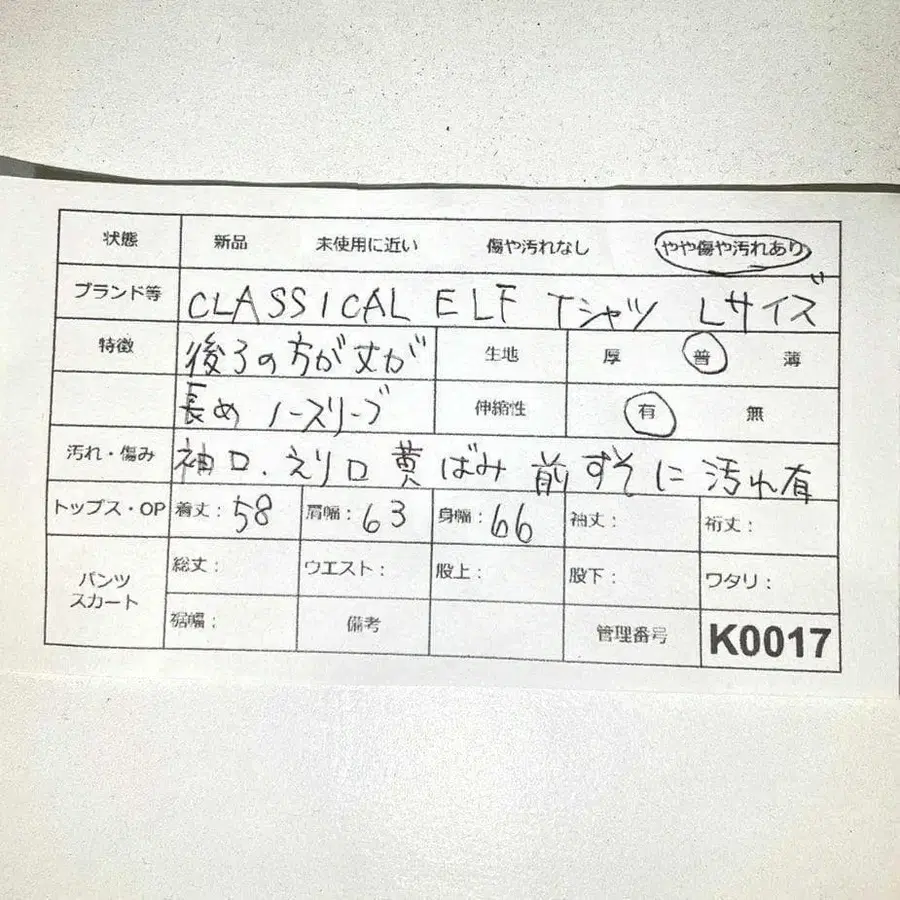 状態 新品 未使用に近い 傷や汚れなし やや傷や汚れあり
ブランド等 CLASSICAL ELF Tシャツ Lサイズ
特徴 後ろの方が丈が 生地 厚 普 薄
長め ノースリーブ 伸縮性 有 無
汚れ・傷み 袖口、えり口 黄ばみ 前すそに汚れ有
トップス・OP 着丈：58 肩幅：63 身幅：66 袖丈： 裄丈：
パンツ スカート 総丈： ウエスト： 股上： 股下： ワタリ：
裾幅： 備考 管理番号 K0017